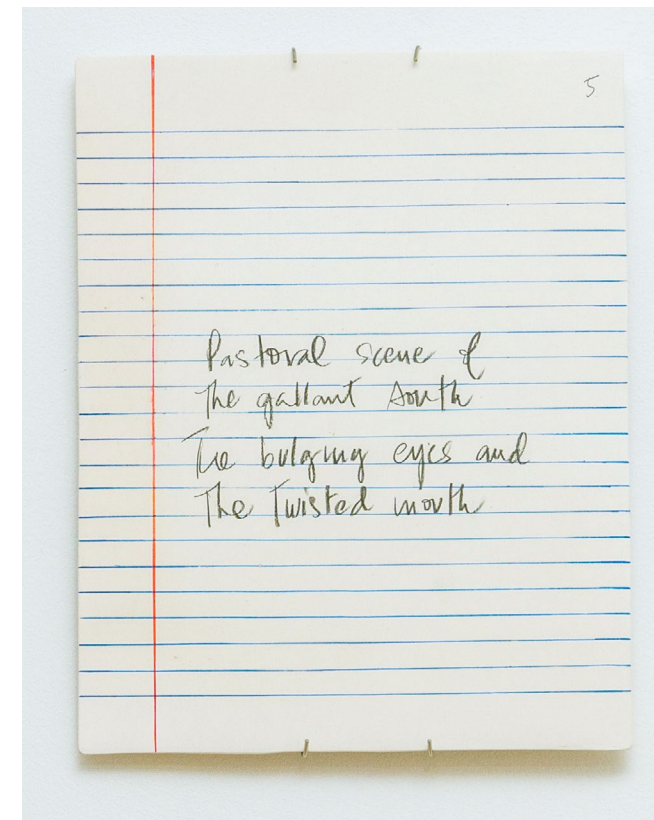 5
Pastoral scene of
The gallant South
The bulging eyes and
The Twisted mouth